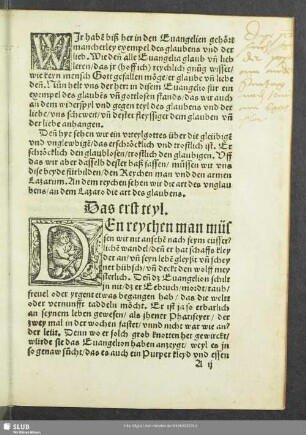 WIr habē biß her in den Euangelien gehört
mancherley exempel des glaubens vnd der
lieb. Wie den alle Euangelia glaub vn̄ lieb
leren/ das jr (hoff ich) reychlich gnug wisset/
wie keyn mensch Got gefallen möge/er glaube vn̄ liebe
den̄. Nun helt vns der herr in disem Euangelio für ein
exempel des glaubēs vn̄ gotlosen stands/ das wir auch
an dem widerspyl vnd gegen teyl des glaubens vnd der
liebe/ vns schewen/ vn̄ dester fleyssiger dem glauben vn̄
der liebe anhangen.
Den̄ hye sehen wir ein vrteyl gottes über die gleubigē
vnd vnglewbigē/ das erschröcklich vnd trostlich ist. Er
schröcklich den glaublosen/ trostlich den glaubigen. Vff
das wir aber dasselb dester baß fassen/ müssen wir vns
dise beyde fürbilden/ den Reychen man vnd den armen
Lazarum. An dem reychen sehen wir die art des vnglau
bens/ an dem Lazaro die art des glaubens.
Das erst teyl.
DEn reychen man müs
sen wir nit ansehē nach seym eusser
lichē wandel/ den̄ er hat schaffs kley
der an/ vn̄ seyn lebē gleyßt vn̄ schey
net hübsch/ vn̄ deckt den wolff mey
sterlich. Den̄ dz Euangelion schilt
jn nit/ dz er Eebruch/ mordt/ raub/
freuel oder yrgent etwas begangen hab/ das die welt
oder vernunfft taddeln möcht. Er ist ja so erbarlich
an seynem leben gewesen/ als jhener Phariseyer/ der
zwey mal in der wochen fastet/ vnnd nicht war wie an/
der leüt. Denn wo er solch grob knotten het gewirckt/
würde sie das Euangelion haben anzeygt/ weyl es jn
so genaw sücht/ das es auch ein Purper kleyd vnd essen
A ij
SLUB